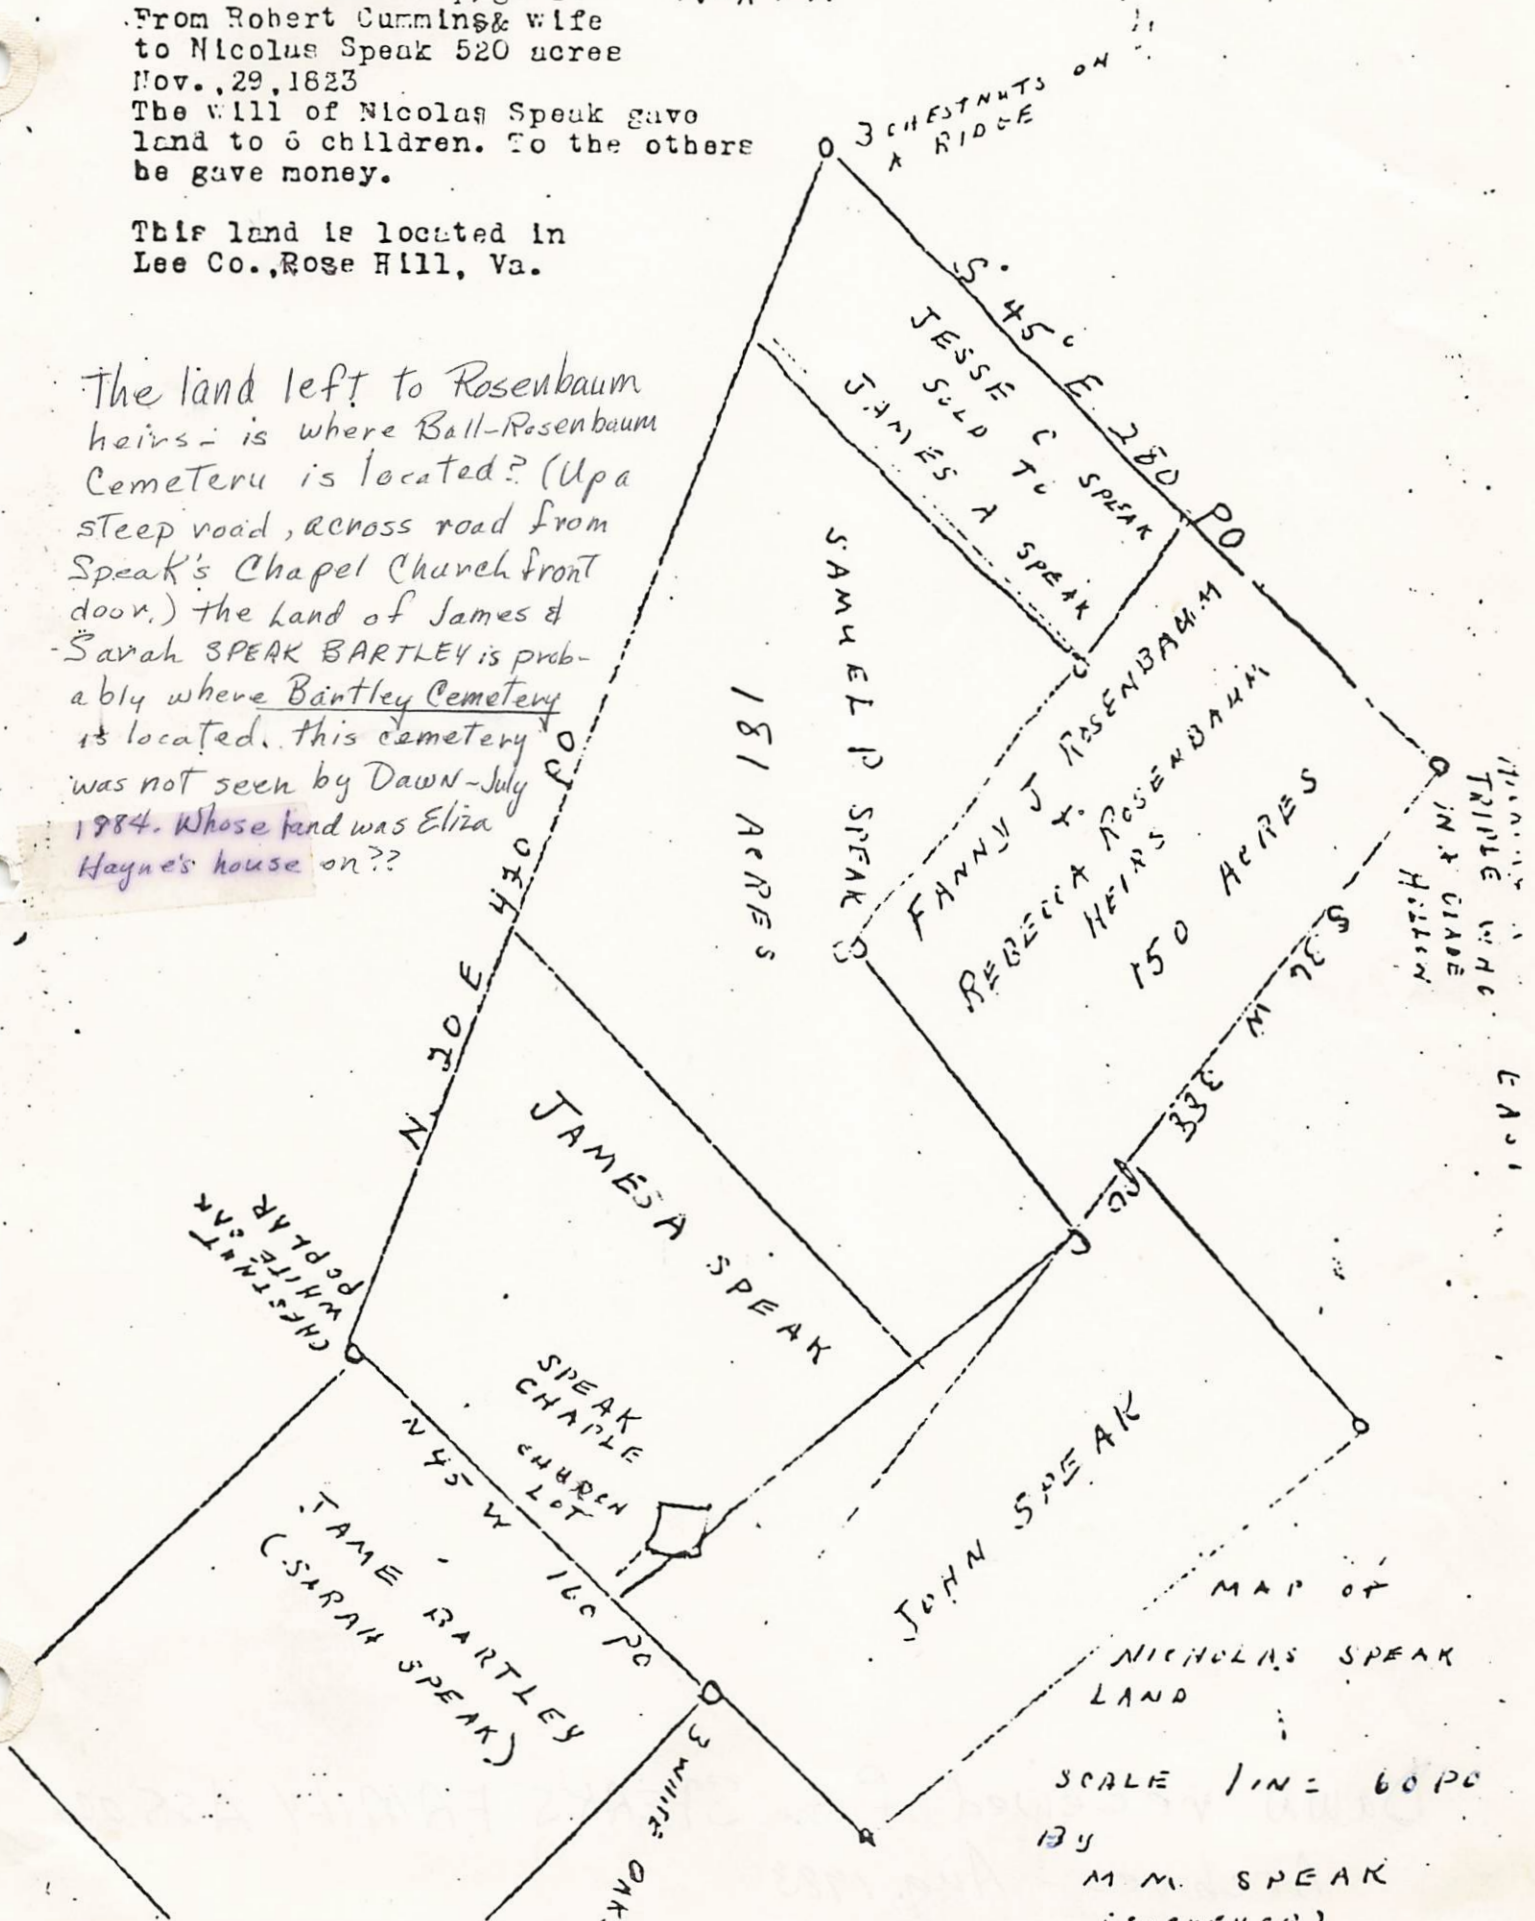 From Robert Cummins& wife
to Nicolas Speak 520 acres
Nov.,29,1823
The will of Nicolas Speak gave
land to 6 children. To the others
he gave money.
This land is located in
Lee Co.,Rose Hill, Va.
The land left to Rosenbaum
heirs- is where Ball-Rosenbaum
Cemeteru is located? (Up a
steep road, across road from
Speak's Chapel Church front
door.) the Land of James &
Sarah SPEAK BARTLEY is prob-
ably where Bartley Cemetery
is located. this cemetery
was not seen by Dawn-July
1984. Whose land was Eliza
Hayne's house on??
3 CHESTNUTS ON
A RIDGE
S 45° E 280 PO
JESSE C SPEAK
SOLD TO
JAMES A SPEAK
SAMUEL P SPEAK
181 ACRES
FANNY J ROSENBAUM
&
REBECCA ROSENBAUM
HEIRS
150 ACRES
TRIPLE
IN
EAST
S 36 W 338 PO
N 20 E 420 PO
JAMES A SPEAK
CHESTNUT
WHITE OAK
POPLAR
SPEAK
CHAPLE
CHURCH
LOT
N 45 W 160 PO
JAME BARTLEY
(SARAH SPEAK)
JOHN SPEAK
3 WHITE OAKS
MAP OF
NICHOLAS SPEAK
LAND
SCALE 1 IN = 60 PO
By
M M. SPEAK